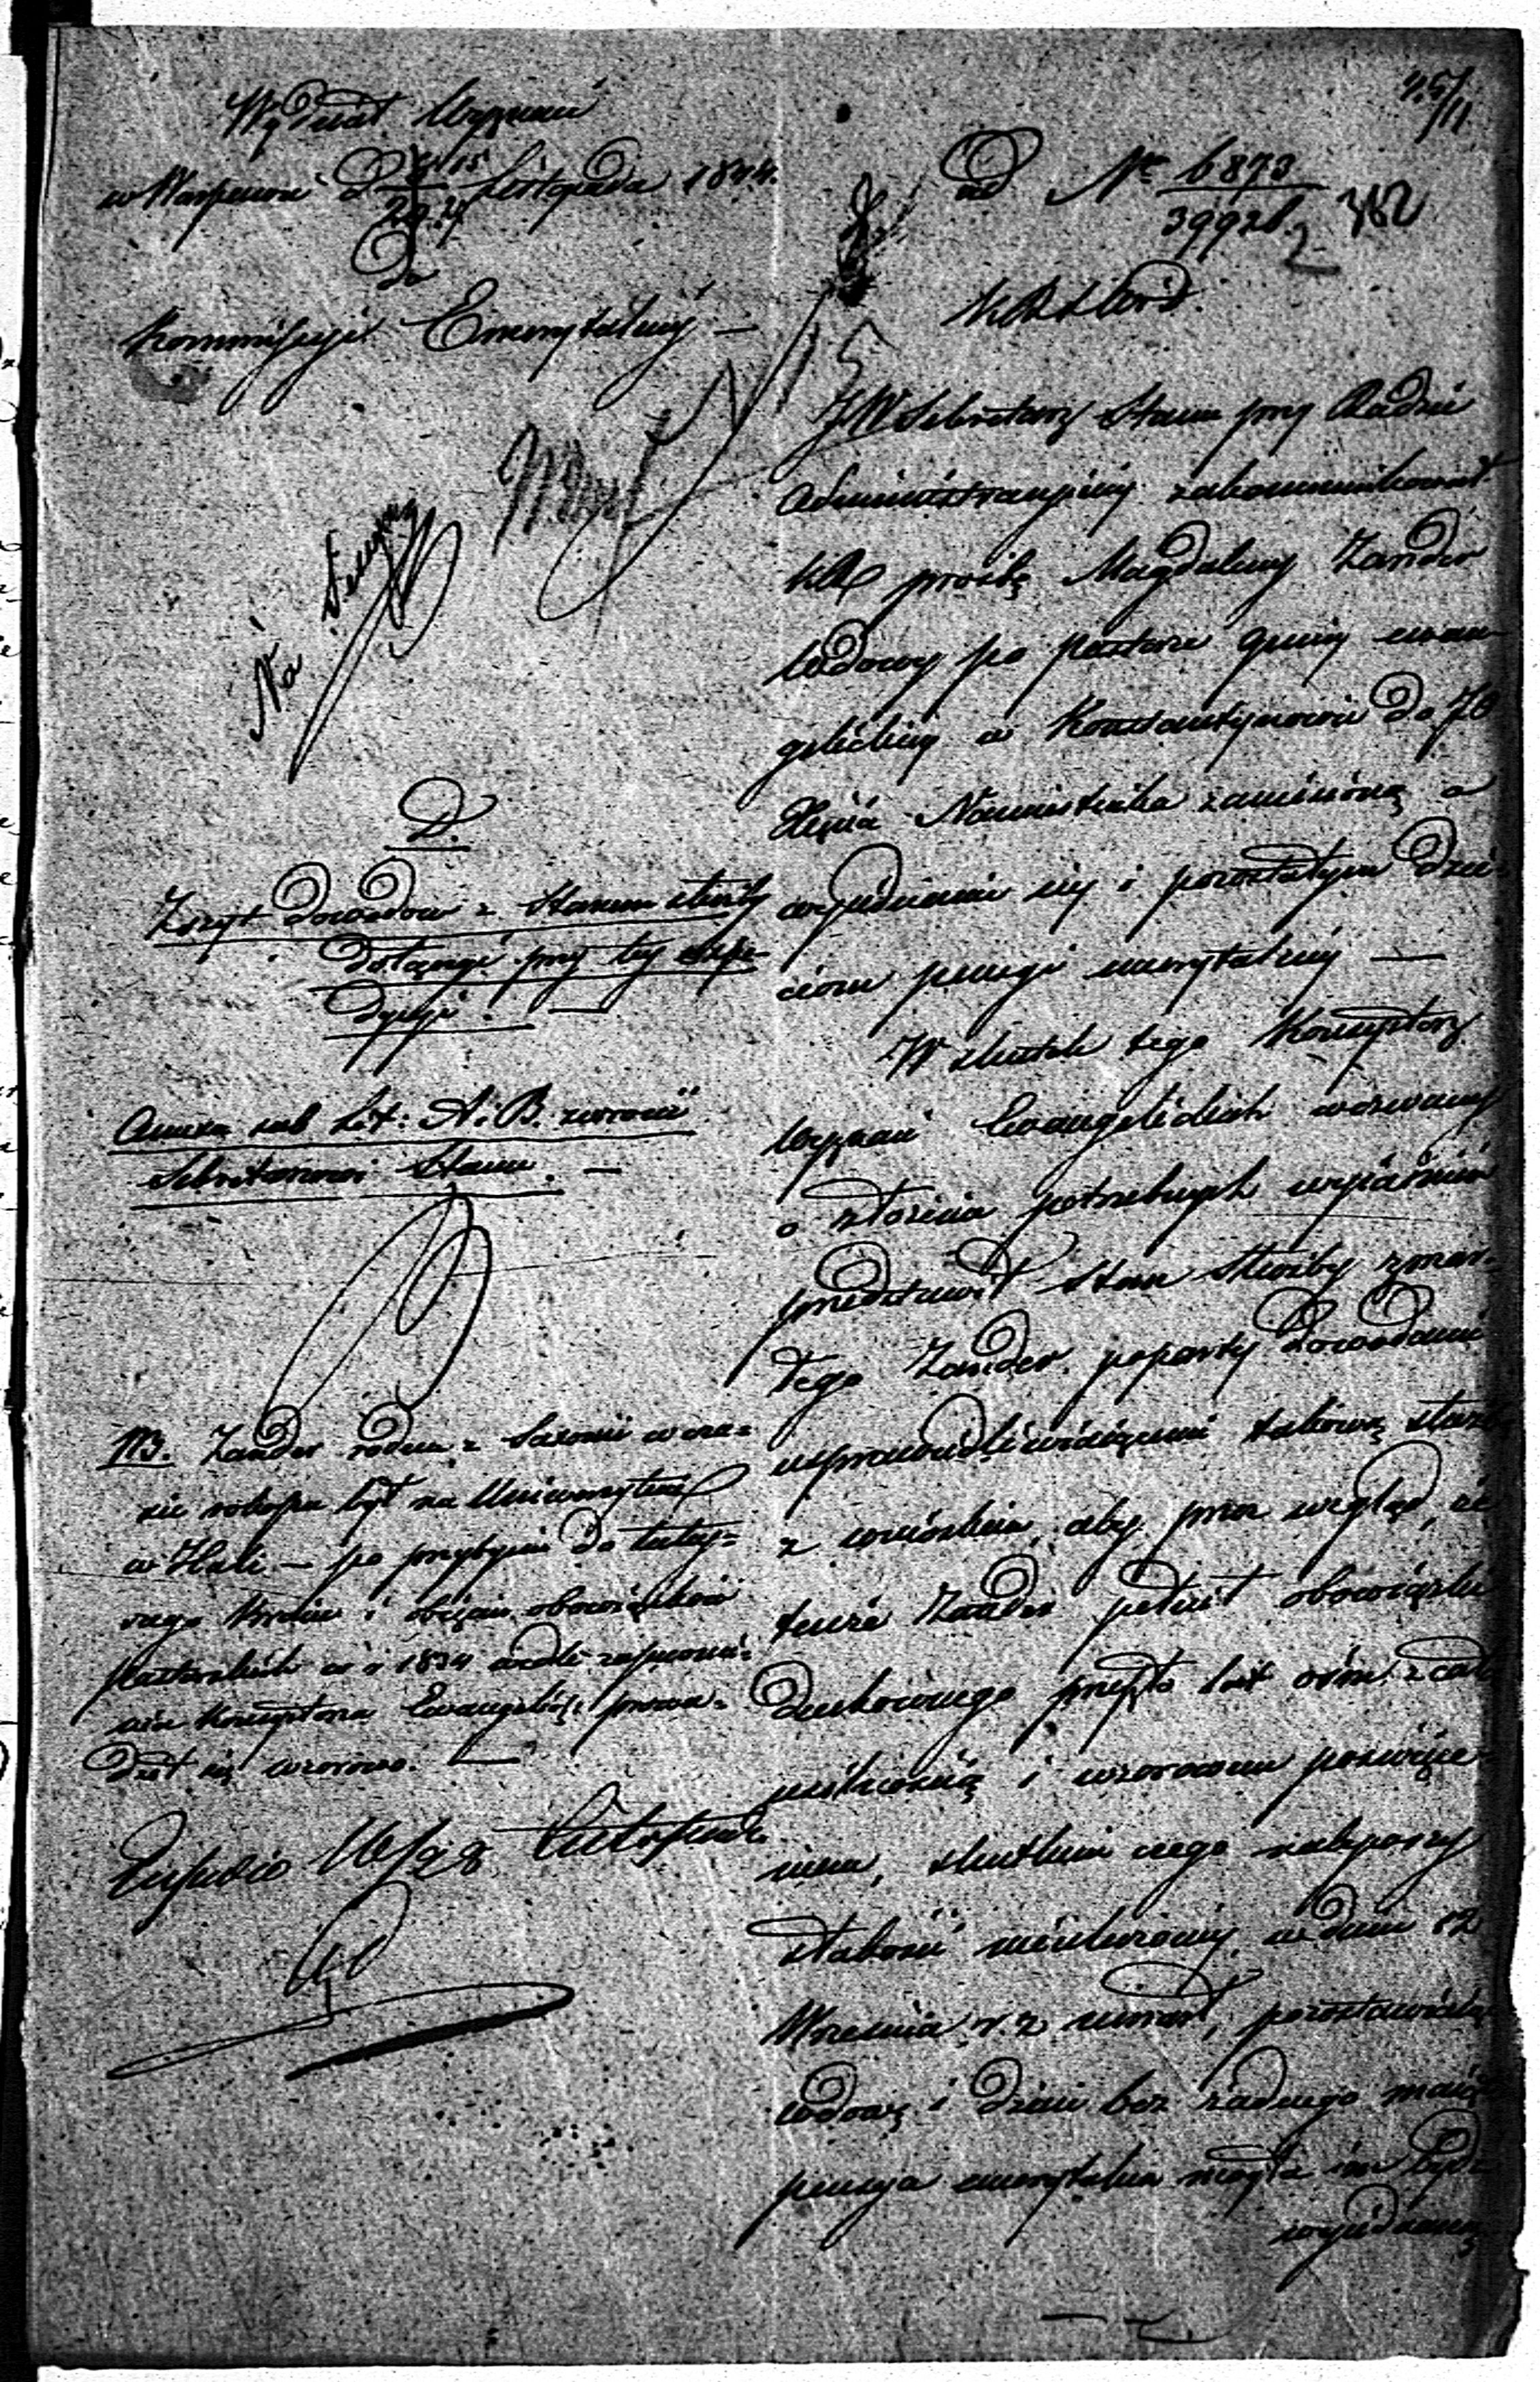 Wydział Wyznań
w Warszawie d 15 Listopada 1844.
Do
Kommissyi Emerytalnéy —
Na Sessyą
D.
Zszyt dowodów z Stanem służby
dołączyć przy tey expe-
dycyi. —
Annexa sub Lit: A. B. zwrócić
Sekretarzowi Stanu. —
NB. Zander rodem z Saxonii w cza=
sie był na Uniwersytecie
w Hali — po przybyciu do tutey=
szego Kraiu i obięciu obowiązków
Pastorskich w r 1834 wedle zapewnie=
nia Konsystorza Ewangelic: prowa=
dził się wzorowo. —
ad No 6873
39928.
2 382
JW Sekretarz Stanu przy Radzie
Administracyiney zakommunikował
KR prośbę Magdaleny Zander
Wdowy po Pastorze gminy ewan-
gelickiey w Konstantynowie do JO
Xięcia Namiestnika zaniesioną o
wyiednanie iey i pozostałym dzie-
ciom pensyi emerytalney —
W skutek tego Konsystorz
Wyznań Ewangelickich wezwany
o złożenie potrzebnych wyiaśnień
przedstawił stan służby zmar-
łego Zander poparty dowodami
usprawiedliwiaiącemi takową służbę
z wnioskiem, aby przez wzgląd, że
tenże Zander pełnił obowiązki
duchownego przeszło lat ośm z całą
gorliwością i wzorowem poświęce-
niem, skutkiem czego
słabości w dniu 12
Września r. z. umarł, pozostawiwszy
wdowę i dzieci bez żadnego maią
pensya emerytalna mogła im bydź
wyiednaną